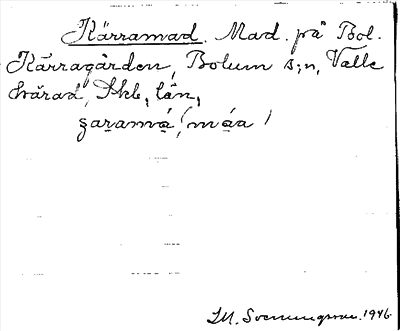 Kärramad. Mad. på Bol.
Kärragården, Bolum s:n, Valle
härad, Skb. län,
ʂaramá, (máa)
I.M. Svenungsson. 1946.